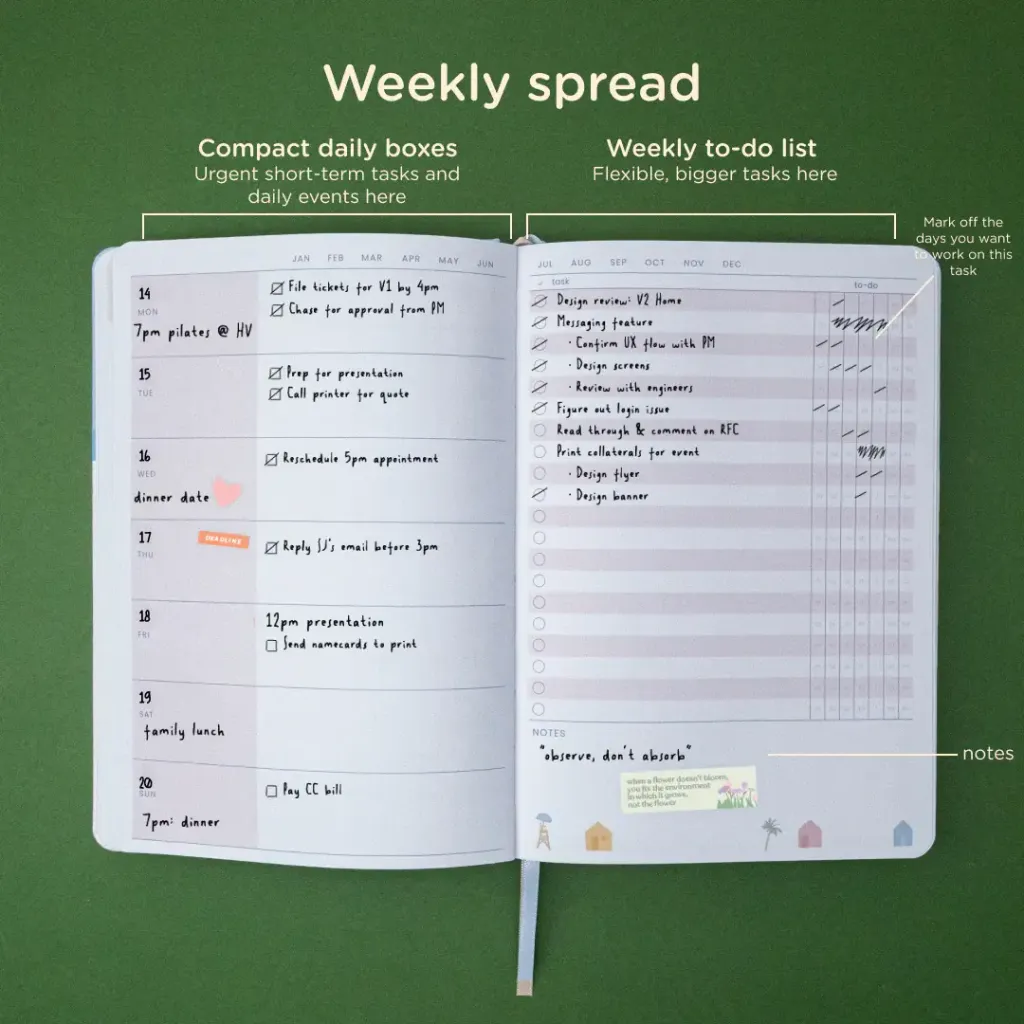 Weekly spread
Compact daily boxes
Urgent short-term tasks and
daily events here
Weekly to-do list
Flexible, bigger tasks here
Mark off the
days you want
to work on this
task
JAN FEB MAR APR MAY JUN
14
MON
7pm pilates @ HV
File tickets for V1 by 4pm
Chase for approval from PM
15
TUE
Prep for presentation
Call printer for quote
16
WED
dinner date
Reschedule 5pm appointment
17
THU
DEADLINE
Reply SJ's email before 3pm
18
FRI
12pm presentation
Send namecards to print
19
SAT
family lunch
20
SUN
7pm: dinner
Pay CC bill
JUL AUG SEP OCT NOV DEC
task to-do
Design review: V2 Home
Messaging feature
· Confirm UX flow with PM
· Design screens
· Review with engineers
Figure out login issue
Read through & comment on RFC
Print collaterals for event
· Design flyer
· Design banner
NOTES
"observe, don't absorb"
when a flower doesn't bloom,
you fix the environment
in which it grows,
not the flower
notes